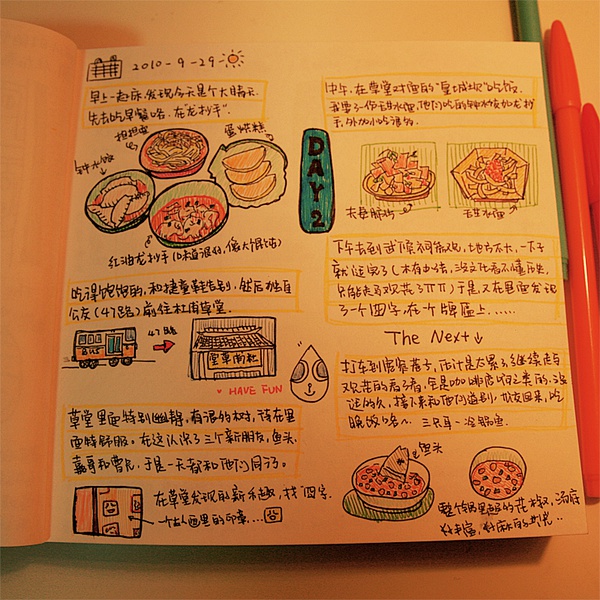 2010-9-29
早上一起床发现今天是个大晴天
先去吃早餐咯.在"龙抄手".
担担面
蛋烘糕
钟水饺
红油龙抄手(味道很好,像大馄饨)
吃得饱饱的,和捷童鞋告别,然后独自
公交(47路)前往杜甫草堂.
47路
BUS
HAVE FUN
草堂里面特别幽静,有很多的树,待在里
面特舒服.在这认识了三个新朋友,鱼头,
嘉哥和曹民,于是一天都和他们同行.
在草堂发现的新乐趣,找"四"字.
一个古人画里的印章....四
DAY 2
中午,在草堂对面的
吃饭
我要了一份甜水面,他们吃的钟水饺加龙抄
手,外加小吃
夫妻肺片
甜水面
下午去到武侯祠参观,地方不大,一下子
就逛完了(木有办法,没文化看不懂历史,
只能走马观花了TT)于是,又在里面发现
了一个四字,在个牌匾上......
The Next↓
打车到宽窄巷子,
继续走马
观花的看了看,全是咖啡店啊之类的,没
逛的久,
吃
晚饭咯~ 三只耳—冷锅鱼.
鱼头
整个锅里面的花椒,汤底
好丰富,